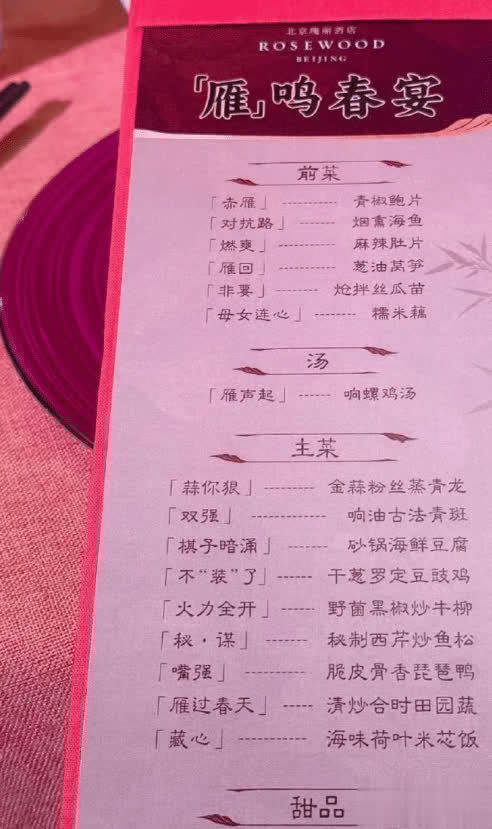 北京瑰丽酒店
ROSEWOOD
BEIJING
「雁」鸣春宴
前菜
「赤雁」---------- 青椒鲍片
「对抗路」------- 烟熏海鱼
「燃爽」---------- 麻辣肚片
「雁回」---------- 葱油莴笋
「非要」-------- 炝拌丝瓜苗
「母女连心」------- 糯米藕
汤
「雁声起」------ 响螺鸡汤
主菜
「蒜你狠」-------- 金蒜粉丝蒸青龙
「双强」------------ 响油古法青斑
「棋子暗涌」------- 砂锅海鲜豆腐
「不“装”了」------ 干葱罗定豆豉鸡
「火力全开」------ 野菌黑椒炒牛柳
「秘·谋」--------- 秘制西芹炒鱼松
「嘴强」---------- 脆皮骨香琵琶鸭
「雁过春天」------ 清炒合时田园蔬
「藏心」---------- 海味荷叶米芯饭
甜品